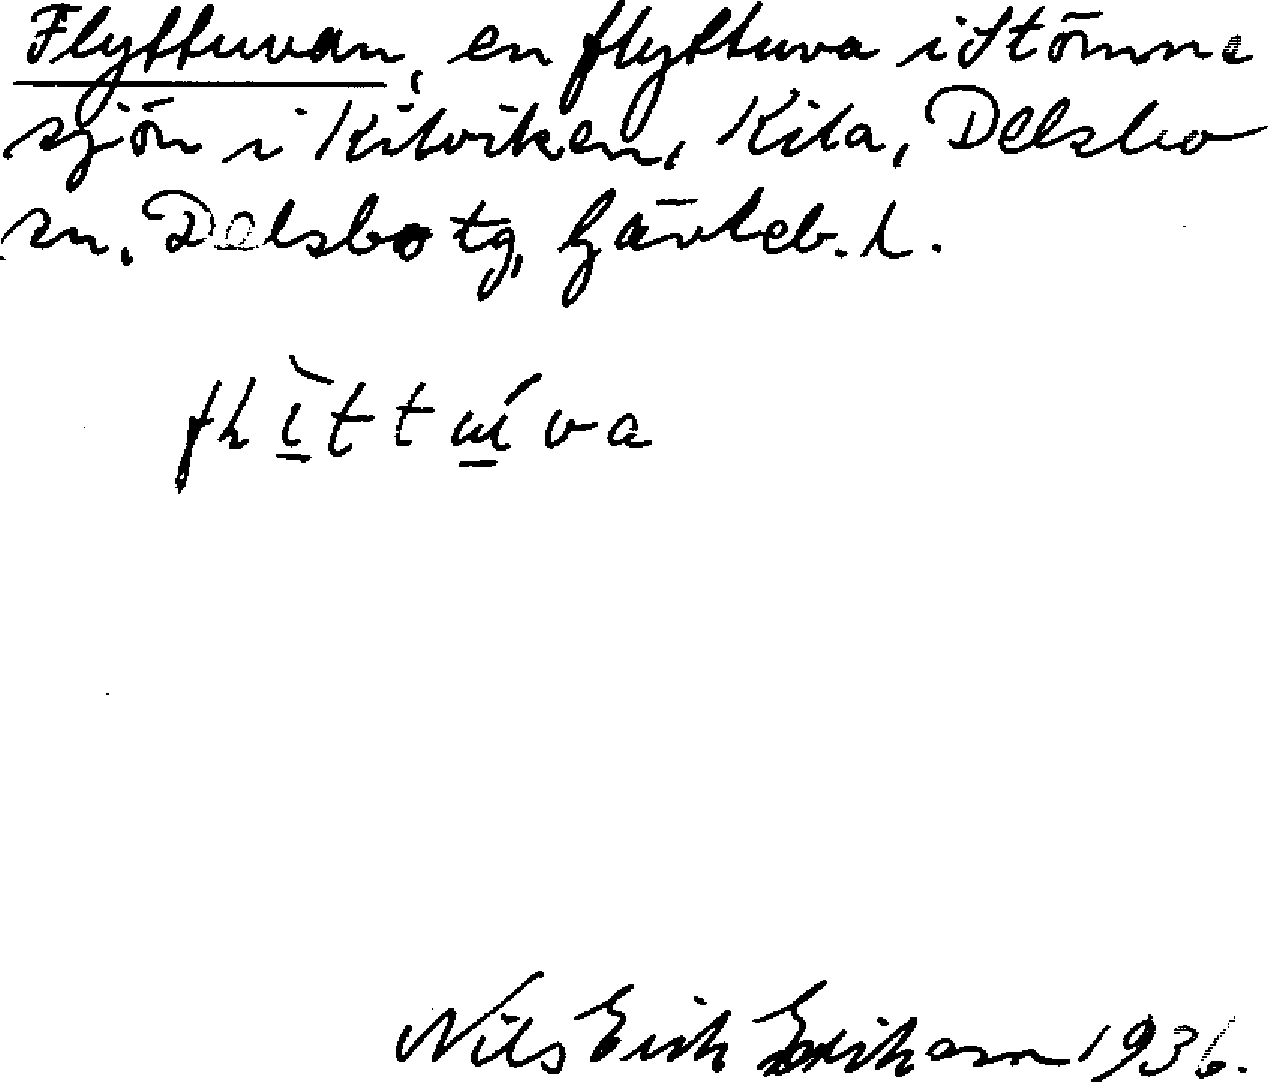 Flyttuvan, en flyttuva i Stömne
sjön i Kilviken, Kila, Delsbo
sn. Delsbo tg, Gävleb. l.
Nils Erik Erikson 1936.